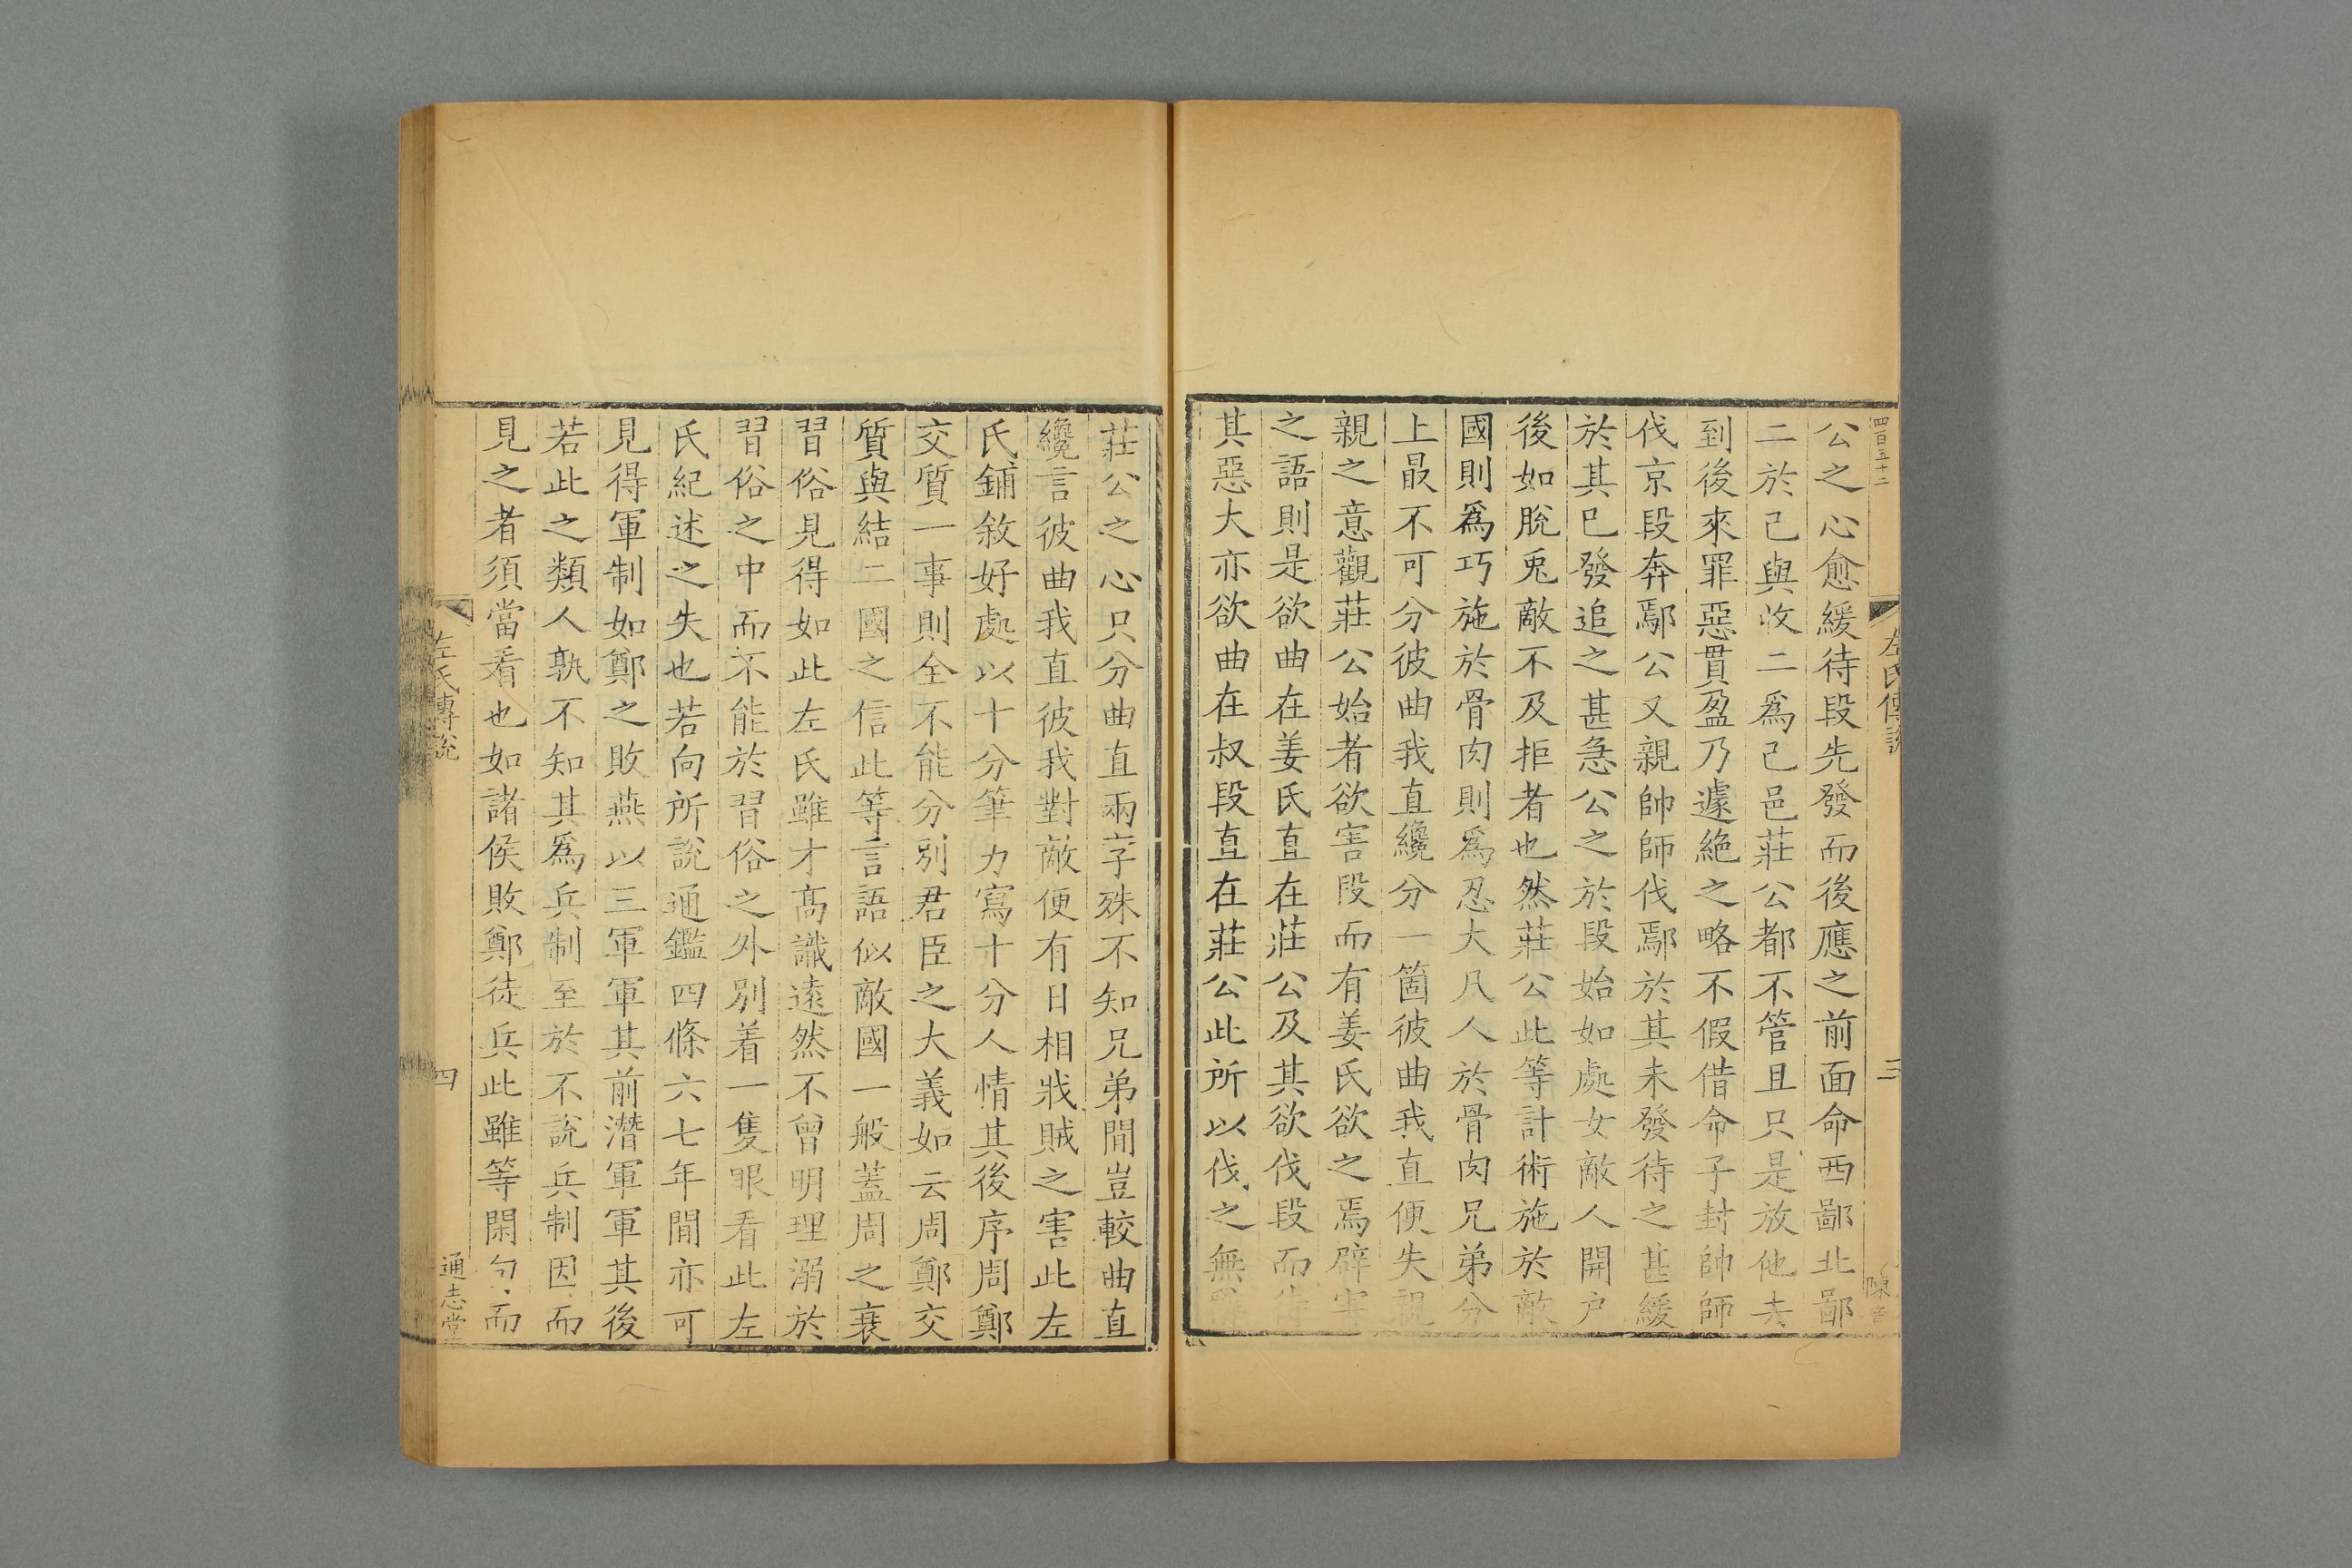 四百五十二
左氏傳說
三
公之心愈緩待段先發而後應之前面命西鄙北鄙
二於己與收二爲己邑莊公都不管且只是放他去
到後來罪惡貫盈乃遽絶之略不假借命子封帥師
伐京段奔鄢公又親帥師伐鄢於其未發待之甚緩
於其已發追之甚急公之於段始如處女敵人開户
後如脫兎敵不及拒者也然莊公此等計術施於敵
國則爲巧施於骨肉則爲忍大凡人於骨肉兄弟分
上最不可分彼曲我直纔分一箇彼曲我直便失親
親之意觀莊公始者欲害段而有姜氏欲之焉辟害
之語則是欲曲在姜氏直在莊公及其欲伐段而待
其惡大亦欲曲在叔段直在莊公此所以伐之無
莊公之心只分曲直兩字殊不知兄弟間豈較曲直
纔言彼曲我直彼我對敵便有日相戕賊之害此左
氏鋪敘好處以十分筆力寫十分人情其後序周鄭
交質一事則全不能分別君臣之大義如云周鄭交
質與結二國之信此等言語似敵國一般蓋周之衰
習俗見得如此左氏雖才髙識遠然不曾明理溺於
習俗之中而不能於習俗之外別着一隻眼看此左
氏紀述之失也若向所說通鑑四條六七年間亦可
見得軍制如鄭之敗燕以三軍軍其前潛軍軍其後
若此之類人孰不知其爲兵制至於不說兵制因而
見之者須當看也如諸侯敗鄭徒兵此雖等閑句而
左氏傳說
四
通志堂